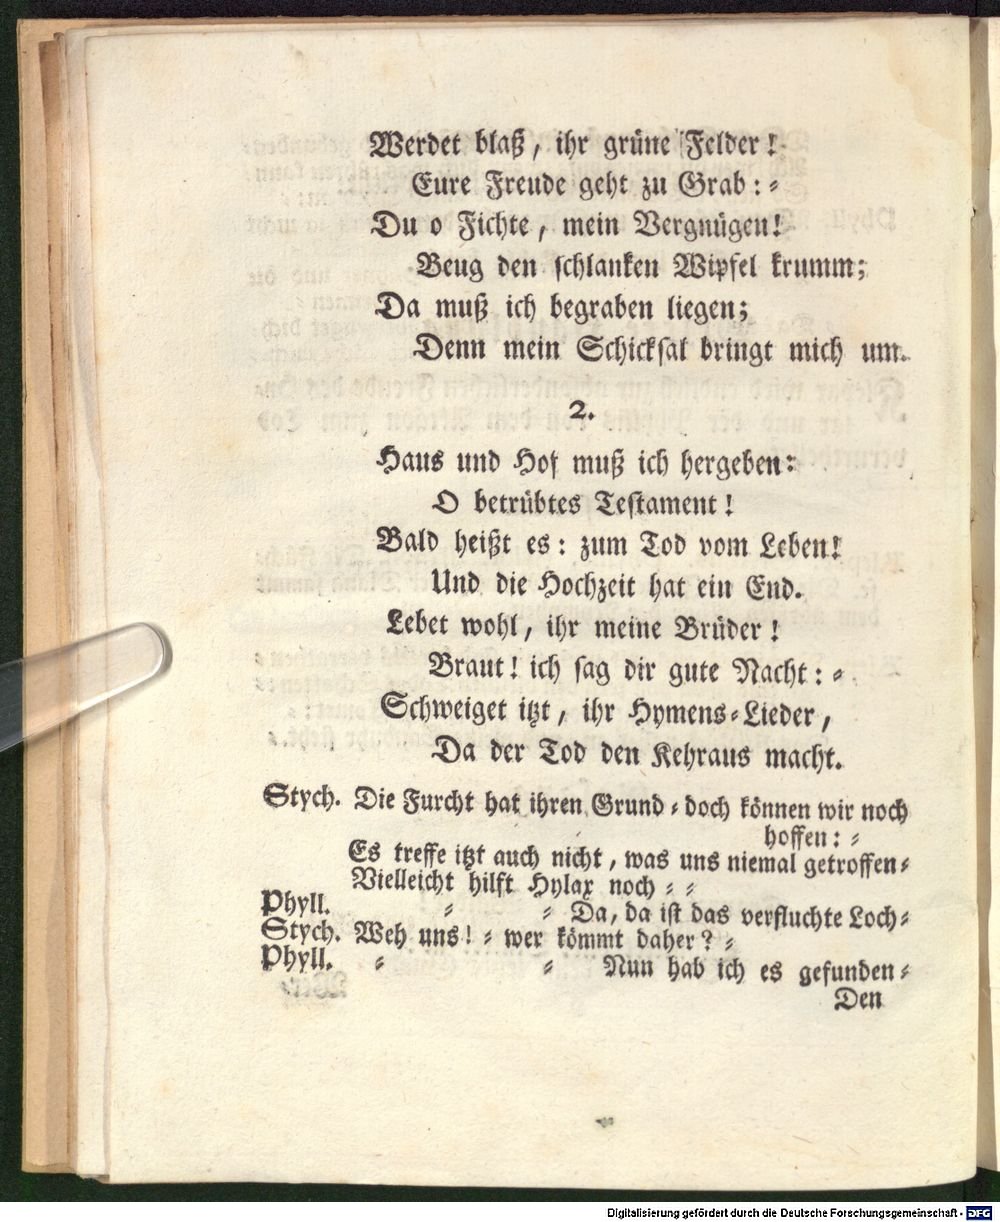 Werdet blaß, ihr grüne Felder!
Eure Freude geht zu Grab: -
Du o Fichte, mein Vergnügen!
Beug den schlanken Wipfel krumm;
Da muß ich begraben liegen;
Denn mein Schicksal bringt mich um.
2.
Haus und Hof muß ich hergeben:
O betrübtes Testament!
Bald heißt es: zum Tod vom Leben!
Und die Hochzeit hat ein End.
Lebet wohl, ihr meine Brüder!
Braut! ich sag dir gute Nacht: -
Schweiget itzt, ihr Hymens-Lieder,
Da der Tod den Kehraus macht.
Stych. Die Furcht hat ihren Grund - doch können wir noch
hoffen: -
Es treffe itzt auch nicht, was uns niemal getroffen-
Vielleicht hilft Hylax noch - -
Phyll. - - Da, da ist das verfluchte Loch-
Stych. Weh uns! - wer kömmt daher? -
Phyll. - - Nun hab ich es gefunden-
Den
Digitalisierung gefördert durch die Deutsche Forschungsgemeinschaft - DFG